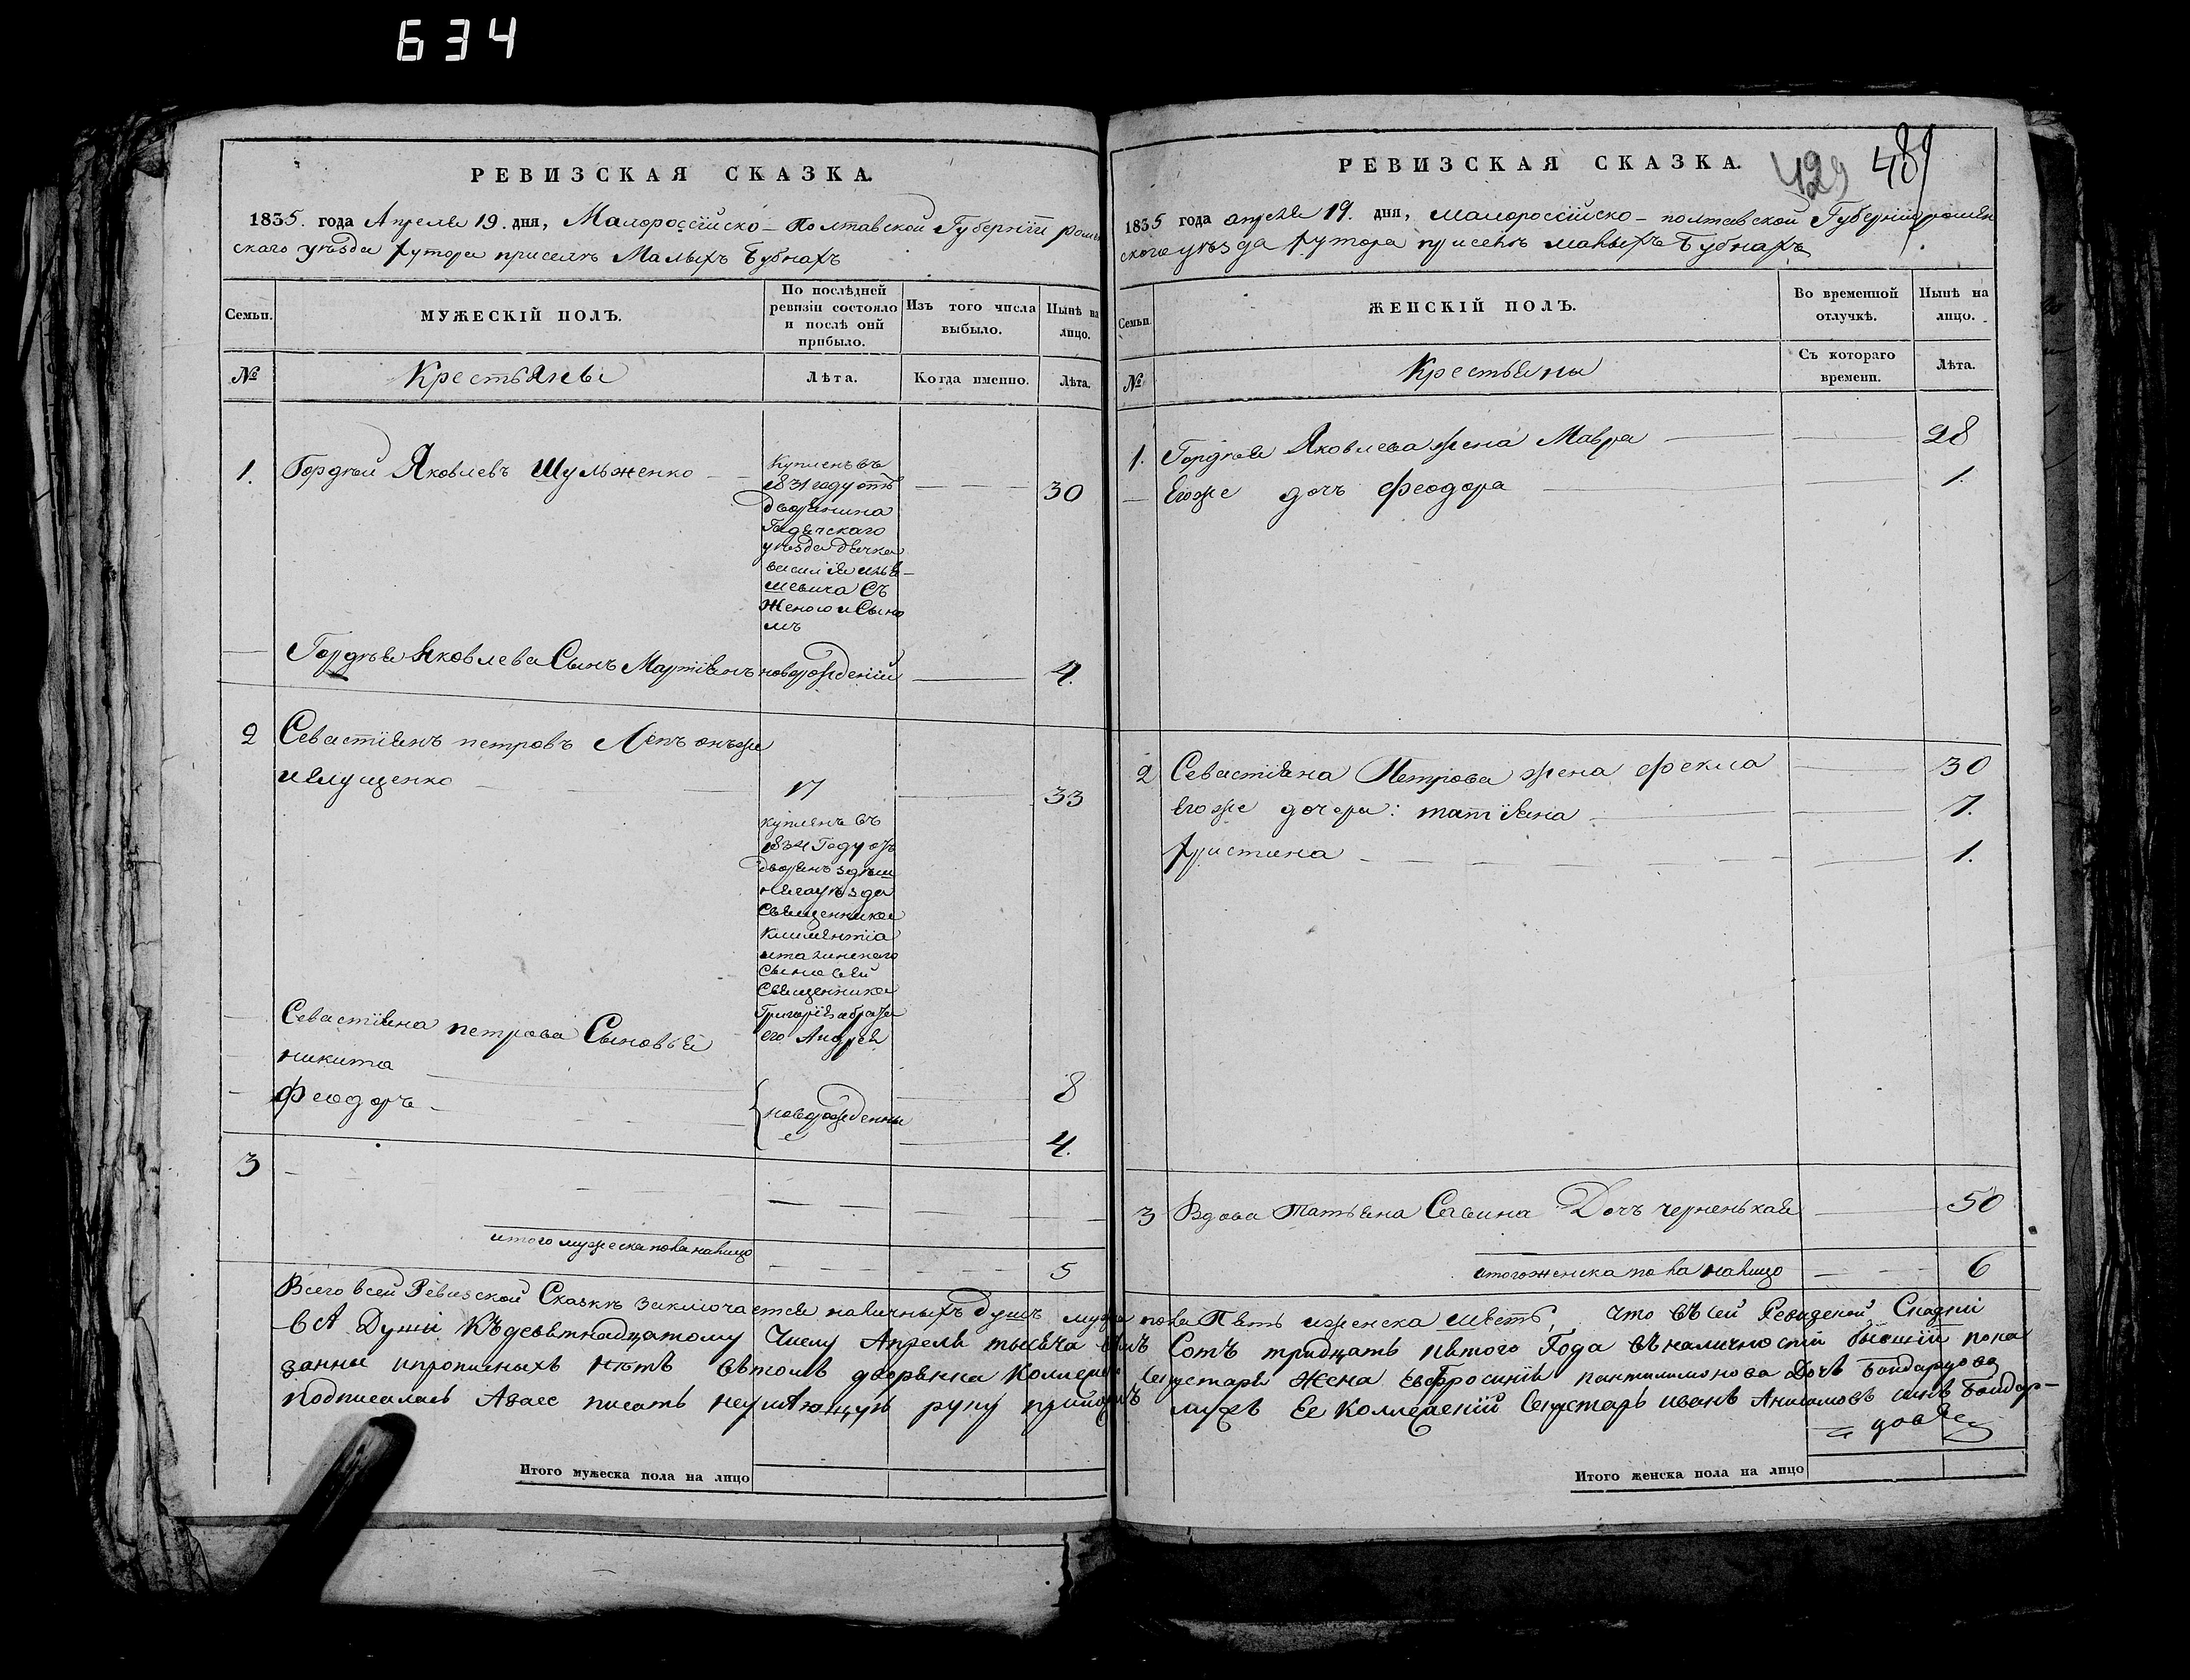 634
РЕВИЗСКАЯ СКАЗКА.
1835. года Апреля 19. дня, Малороссійско-Полтавской Губерніи ромен
скаго уѣзда хутора приселѣ Малыхъ Бубнахъ
Семьи.
МУЖЕСКІЙ ПОЛЪ.
По послѣдней ревизіи состояло и послѣ оній прибыло.
Изъ того числа выбыло.
Нынѣ на лицо.
№
Крестьяне
Лѣта.
Когда именно.
Лѣта.
1.
Гордѣй Яковлевъ Шульженко
Купленъ въ
1831 году отъ
дворянина
Гадячскаго
уѣзда Дячка
василія
шевича Съ
Женою и Сыно
мъ
30
Гордѣя Яковлева Сынъ Мартіянъ новорожденій 4.
2
Севастіянъ петровъ онъже
илущенко
17
33
купленъ въ
1834 Году отъ
дворянъ здѣш
няго уѣзда
Священника
Климентіа
Сыновей
Священника
Григорія ибрата
его Андрея
Севастіяна петрова Сыновья
никита 8
Феодоръ 4.
новорожденны
е
3
итого мужеска пола налицо 5
РЕВИЗСКАЯ СКАЗКА.
429 489
1835 года апреля 19. дня, малороссійско-полтавской Губерніи ромен
скаго уѣзда хутора приселѣ малыхъ Бубнахъ
Семьи.
ЖЕНСКІЙ ПОЛЪ.
Во временной отлучкѣ.
Нынѣ на лицо.
№
Крестьяны
Съ котораго времени.
Лѣта.
1. Гордѣя Яковлева жена Мавра 28
Егоже дочъ Феодора 1.
2 Севастіяна Петрова жена Фекла 30
Егоже дочери: татіяна 7.
христина 1.
3 Вдова Татьяна Савина Дочъ черненькая 50
итого женска пола налицо 6
Всего всей Ревизской Сказкѣ заключается наличныхъ душъ мужеска пола Пять и женска шесть, что въ сей Ревизской Сказки
всѣ Души Къ девятнадцатому Числу Апреля тысяча восемъ Сотъ тридцать пятого Года въ наличности бывшій пока
занны и прописныхъ нѣтъ въ томъ дворянка Коллежского Секретаря Жена Евфросинія пантилимонова Дочь
подписалась А за ее писать неумѣющую руку приложилъ мужъ Ее Коллежскій Секретарь иванъ синъ Бондар-
Итого мужеска пола на лицо
Итого женска пола на лицо